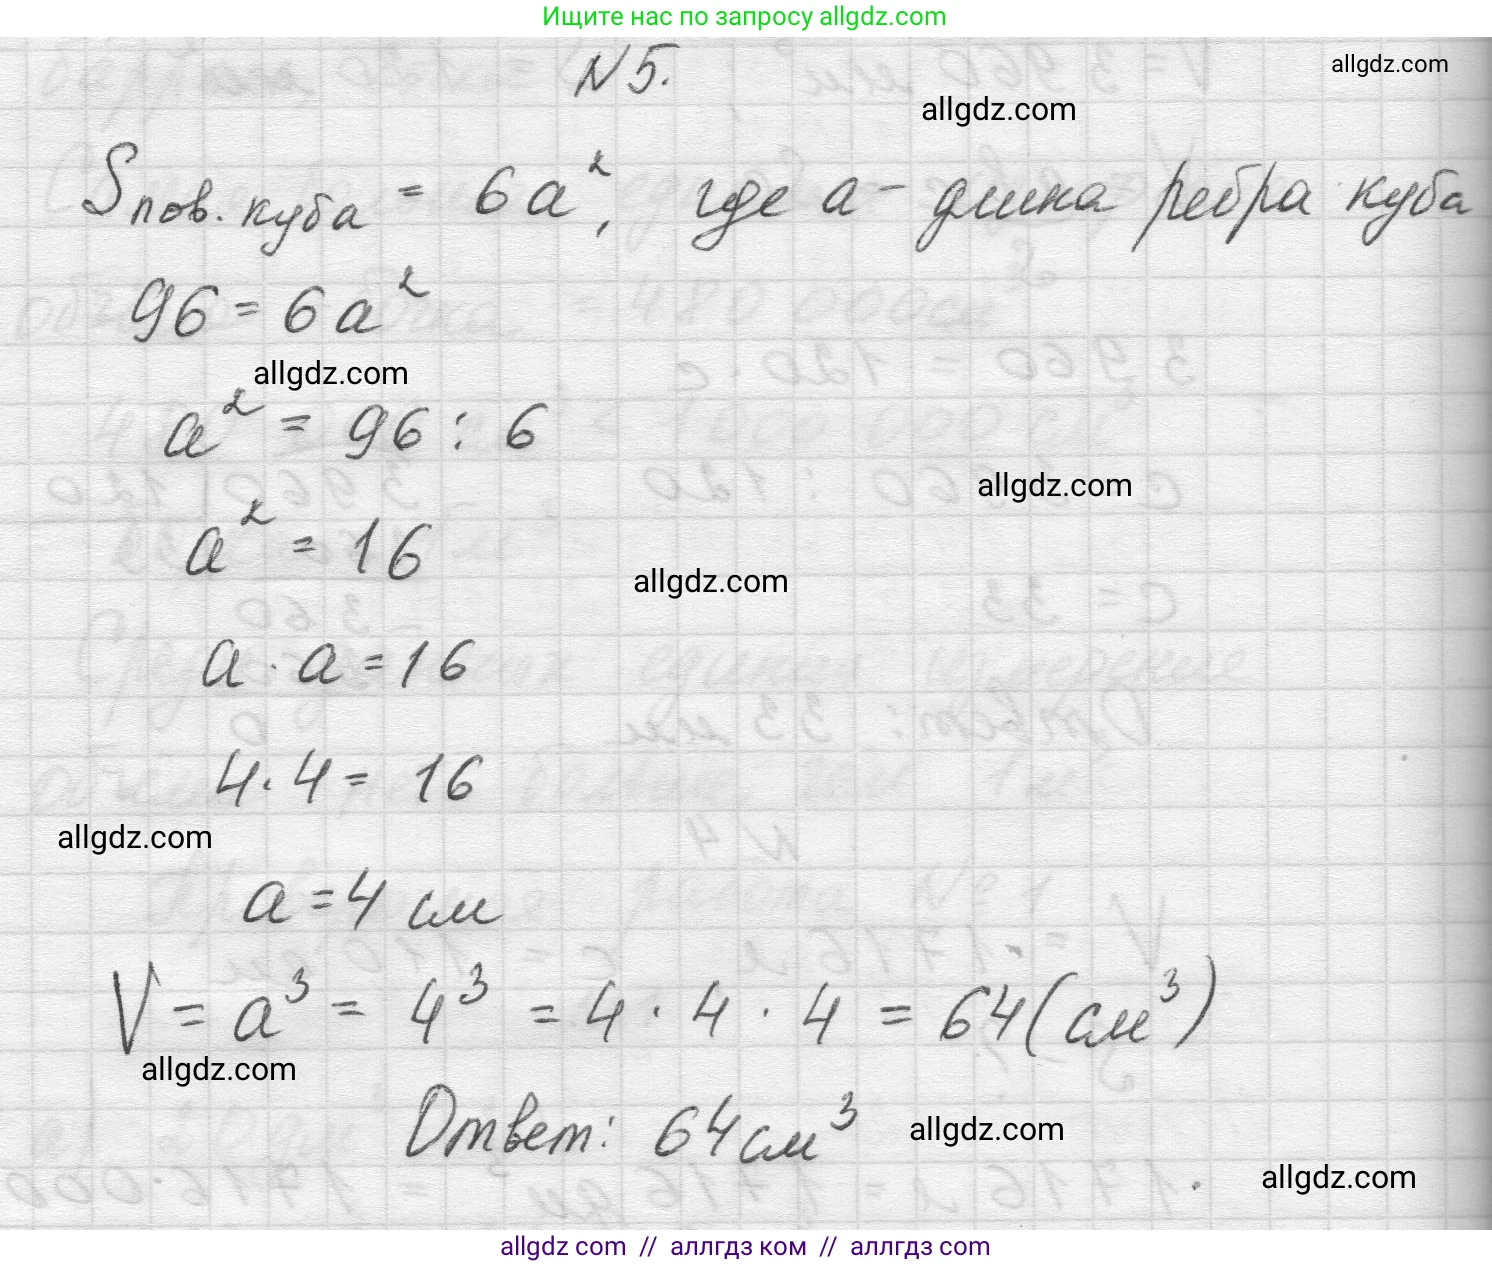 Ищите нас по запросу allgdz.com
allgdz.com
N 5.
allgdz.com
Sпов. куба = 6a², где a - длина ребра куба
96 = 6a²
allgdz.com
a² = 96 : 6
allgdz.com
a² = 16
allgdz.com
a · a = 16
4 · 4 = 16
allgdz.com
a = 4 см
V = a³ = 4³ = 4 · 4 · 4 = 64 (см³)
allgdz.com
Ответ: 64 см³
allgdz.com
allgdz.com
allgdz com // аллгдз ком // аллгдз com